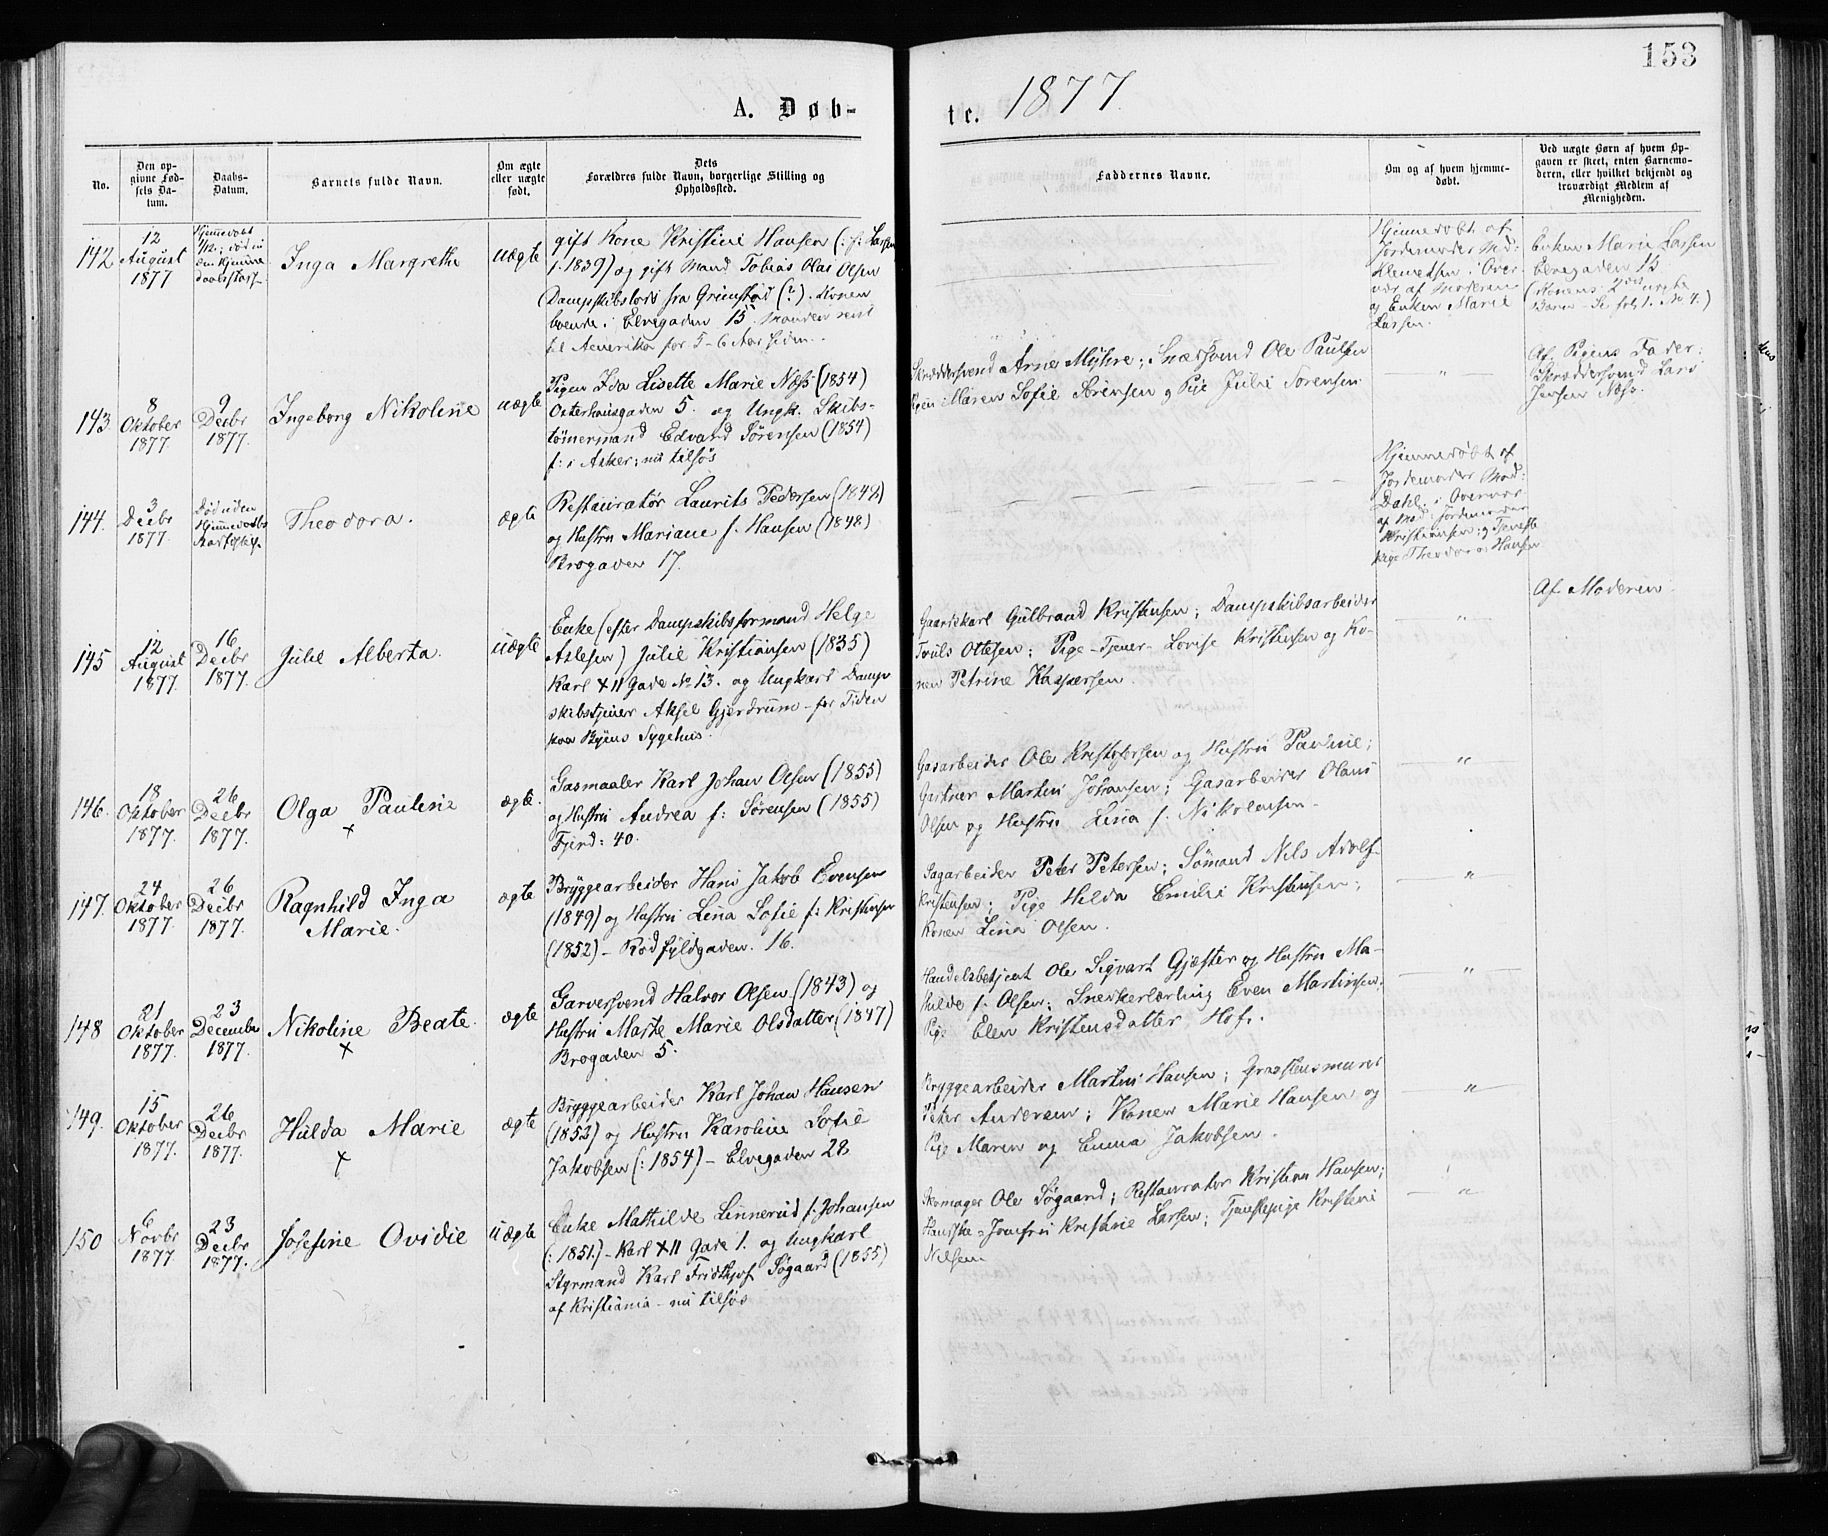 153
A. Døb-
te. 1877.
No.
Den op-
givne Fød-
sels Da-
tum.
Daabs-
Datum.
Barnets fulde Navn.
Om ægte
eller uægte
født.
Dets
Forældres fulde Navn, borgerlige Stilling og
Opholdssted.
Faddernes Navne.
Om og af hvem hjemme-
døbt.
Ved uægte Børn af hvem Op-
gaven er skeet, enten Barnemo-
deren, eller hvilket bekjendt og
troværdigt Medlem af
Menigheden.
142
12
August
1877
Hjemmedøbt
Inga Margrethe
uægte
gift Kone Kristine Hansen (: f: Larsen
f. 1839) og gift Mand Tobias Olai Olsen
Dampskibslods fra Grimstad (?). Konen
boende i Elvegaden 15. Manden reist
til Amerika for 5-6 Aar siden.
Hjemmedøbt af
Jordemoder Mad:
Klemetsen i Over-
vær af Moderen
og Enken Marie
Larsen.
Enken Marie Larsen
Elvegaden 15
(Konens 2det uægte
Barn - Se fol. 1. No 4.)
143
8
Oktober
1877.
9
Decbr
1877.
Ingeborg Nikoline
uægte
Pigen Ida Lisette Marie Næss (1854)
Osterhausgaden 5. og Ungk. Skibs-
tømermand Edvard Sørensen (1854)
f: i Asker; nu tilsøs
Skræddersvend Arne Myhre; Snedkersvend Ole Paulsen
Pigen Maren Sofie Sørensen og Pige Julie Sorensen
"
Af Pigens Fader:
Skræddersvend Lars
Jensen Næss.
144.
3
Decbr
1877.
Død uden
Theodora.
ægte
Restauratør Laurits Pedersen (1849)
og Hustru Mariane f. Hansen (1848)
Brogaden 17.
Hjemmedøbt af
Jordemoder Mad:
Dahl, i Overvær
af Mad: Jordemoder
Kristiansen; og Tjeneste
pige Theodora Hansen
145
12
August
1877
16
Decbr
1877.
Julie Alberta.
uægte
Enke (efter Dampskibsformand Helge
Aslesen) Julie Kristiansen (1835)
Karl XII Gade No 13. og Ungkarl Damp
skibstjener Aksel Gjerdrum - for Tiden
paa Byens Sygehus.
Gaardskarl Gulbrand Kristensen; Dampskibsarbeider
Truls Ottesen; Pige-Tjener Lovise Kristensen og Ko-
nen Petrine Kaspersen.
"
Af Moderen
146.
18
Oktober
1877.
26
Decbr
1877.
Olga Pauline
×
ægte.
Gasmaaler Karl Johan Olsen (1855)
og Hustru Andrea f: Sørensen (1855)
Fjerd: 40.
Gasarbeider Ole Kristofersen og Hustru Pauline;
Gørtner Martin Johansen; Gasarbeider Olaus
Olsen og Hustru Lina f. Nikolaisen.
"
147.
24
Oktober
1877.
26
Decbr
1877.
Ragnhild Inga
Marie.
ægte
Bryggearbeider Hans Jakob Evensen
(1849) og Hustru Lina Sofie f: Kristensen
(1852) - Rødfyldgaden. 16.
Sagarbeider Peter Petersen; Sømand Nils Adolf
Kristensen; Pige Hilda Emilie Kristensen;
Konen Lina Olsen.
"
148
21
Oktober
1877.
23
December
1877.
Nikoline Beate.
×
ægte
Garversvend Halvor Olsen (1843) og
Hustru Marte Marie Olsdatter (1847)
Brogaden 5.
Handelsbetjent Ole Sigvart Gjæster og Hustru Ma-
thilde f. Olsen; Snedkerlærling Even Martinsen;
Pige Elen Kristensdatter Hof.
"
149.
15
Oktober
1877.
26
Decbr
1877.
Hulda Marie
×
ægte
Bryggearbeider Karl Johan Hansen
(1852) og Hustru Karoline Sofie
Jakobsen (: 1854) - Elvegaden 28
Bryggearbeider Martin Hansen; Graastensmurer
Peter Andersen; Konen Marie Hansen og
Pige Maren og Emma Jakobsen.
"
150
6
Novbr
1877.
23
Decbr
1877.
Josefine Ovidie
uægte
Enke Mathilde Linnerud f. Johansen
(: 1851.) - Karl XII Gade 1. og Ungkarl
Styrmand Karl Fridthjof Søgaard (1855)
af Kristiania - nu tilsøs
Skomager Ole Søgaard; Restauratør Kristian Hansen;
Hanske-Jomfru Kristine Larsen; Tjenestepige Kristine
Nilsen.
"